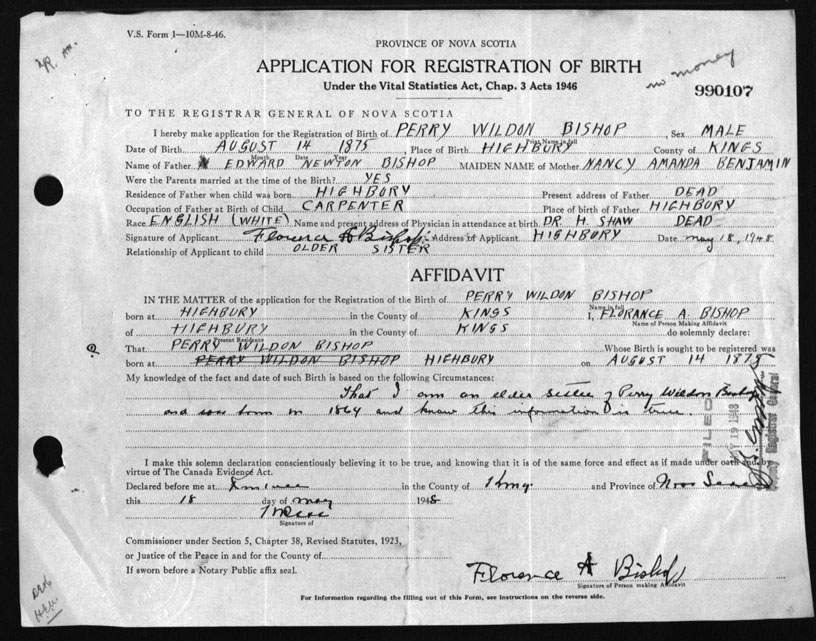 V.S. Form 1—10M-8-46.
PROVINCE OF NOVA SCOTIA
no money
APPLICATION FOR REGISTRATION OF BIRTH
Under the Vital Statistics Act, Chap. 3 Acts 1946
990107
TO THE REGISTRAR GENERAL OF NOVA SCOTIA
I hereby make application for the Registration of Birth of PERRY WILDON BISHOP, Sex MALE
Print Name in full
Date of Birth AUGUST 14 1875, Place of Birth HIGHBURY County of KINGS
Month Date Year
Name of Father EDWARD NEWTON BISHOP MAIDEN NAME of Mother NANCY AMANDA BENJAMIN
Were the Parents married at the time of the Birth? YES
Residence of Father when child was born HIGHBURY Present address of Father DEAD
Occupation of Father at Birth of Child CARPENTER Place of birth of Father HIGHBURY
Race ENGLISH (WHITE) Name and present address of Physician in attendance at birth DR H. SHAW DEAD
Signature of Applicant Florence A Bishop Address of Applicant HIGHBURY Date May 18, 1948
Relationship of Applicant to child OLDER SISTER
AFFIDAVIT
IN THE MATTER of the application for the Registration of the Birth of PERRY WILDON BISHOP
Name in full
born at HIGHBURY in the County of KINGS I, FLORANCE A. BISHOP
Name of Person Making Affidavit
of HIGHBURY in the County of KINGS do solemnly declare:
Present Residence
That PERRY WILDON BISHOP Whose Birth is sought to be registered was
born at PERRY WILDON BISHOP HIGHBURY on AUGUST 14 1875
My knowledge of the fact and date of such Birth is based on the following Circumstances:
That I am an elder sister of Perry Wildon Bishop
and was born in 1864 and know this information is true.
FILED
MAY 19 1948
Deputy Registrar General
I make this solemn declaration conscientiously believing it to be true, and knowing that it is of the same force and effect as if made under oath and by
virtue of The Canada Evidence Act.
Declared before me at in the County of Kings and Province of Nova Scotia
this 18 day of May 1948
Signature of
Commissioner under Section 5, Chapter 38, Revised Statutes, 1923,
or Justice of the Peace in and for the County of
If sworn before a Notary Public affix seal.
Florence A Bishop
Signature of Person making Affidavit
For Information regarding the filling out of this Form, see Instructions on the reverse side.